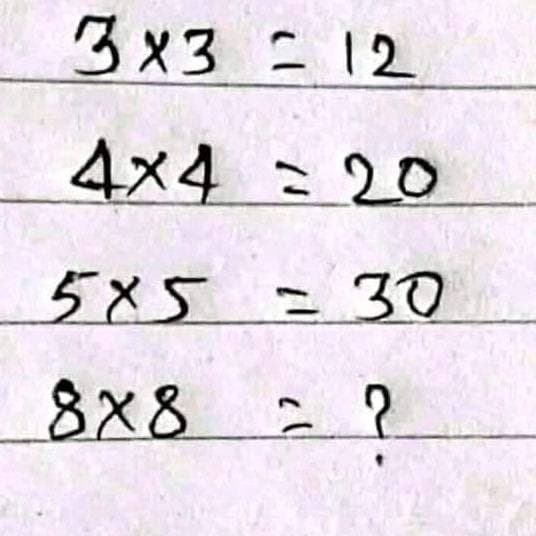 3×3 = 12
4×4 = 20
5×5 = 30
8×8 = ?